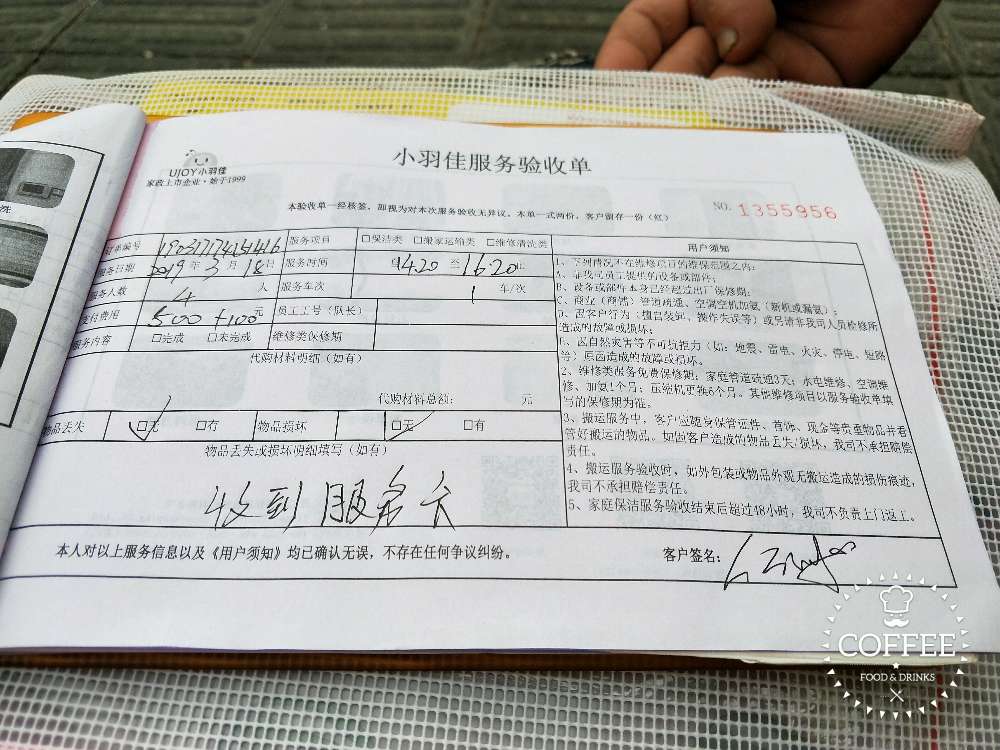 UJOY小羽佳
家政上市企业·始于1999
小羽佳服务验收单
本验收单一经核签，即视为对本次服务验收无异议。本单一式两份，客户留存一份（红）
NO. 1355956
订单编号 服务项目 □保洁类 □搬家运输类 □维修清洗类
服务日期 2019年3月18日 服务时间 自14:20至16:20止
服务人数 4 人 服务车次 1 车/次
支付费用 500+100元 员工工号（队长）
服务内容 □完成 □未完成 维修类保修期
代购材料明细（如有）
代购材料总额： 元
物品丢失 □无 □有 物品损坏 □无 □有
物品丢失或损坏明细填写（如有）
收到服务卡
用户须知
1、下列情况不在维修项目的维保范围之内：
A、非我司员工提供的设备或部件；
B、设备或部件本身已经超过出厂保修期；
C、商业（商铺）管道疏通、空调空机加氨（新机或漏氨）；
D、因客户行为（擅自装卸、操作失误等）或另请非我司人员检修所
造成的故障或损坏；
E、因自然灾害等不可抗拒力（如：地震、雷电、火灾、停电、短路
等）原因造成的故障或损坏。
2、维修类服务免费保修期：家庭管道疏通3天；水电维修、空调维
修、加氨1个月；压缩机更换6个月。其他维修项目以服务验收单填
写的保修期为准。
3、搬运服务中，客户应随身保管证件、首饰、现金等贵重物品并看
管好搬运的物品。如因客户造成的物品丢失/损坏，我司不承担赔偿
责任。
4、搬运服务验收时，如外包装或物品外观无搬运造成的损伤痕迹，
我司不承担赔偿责任。
5、家庭保洁服务验收结束后超过48小时，我司不负责上门返工。
本人对以上服务信息以及《用户须知》均已确认无误，不存在任何争议纠纷。 客户签名：
COFFEE
FOOD & DRINKS